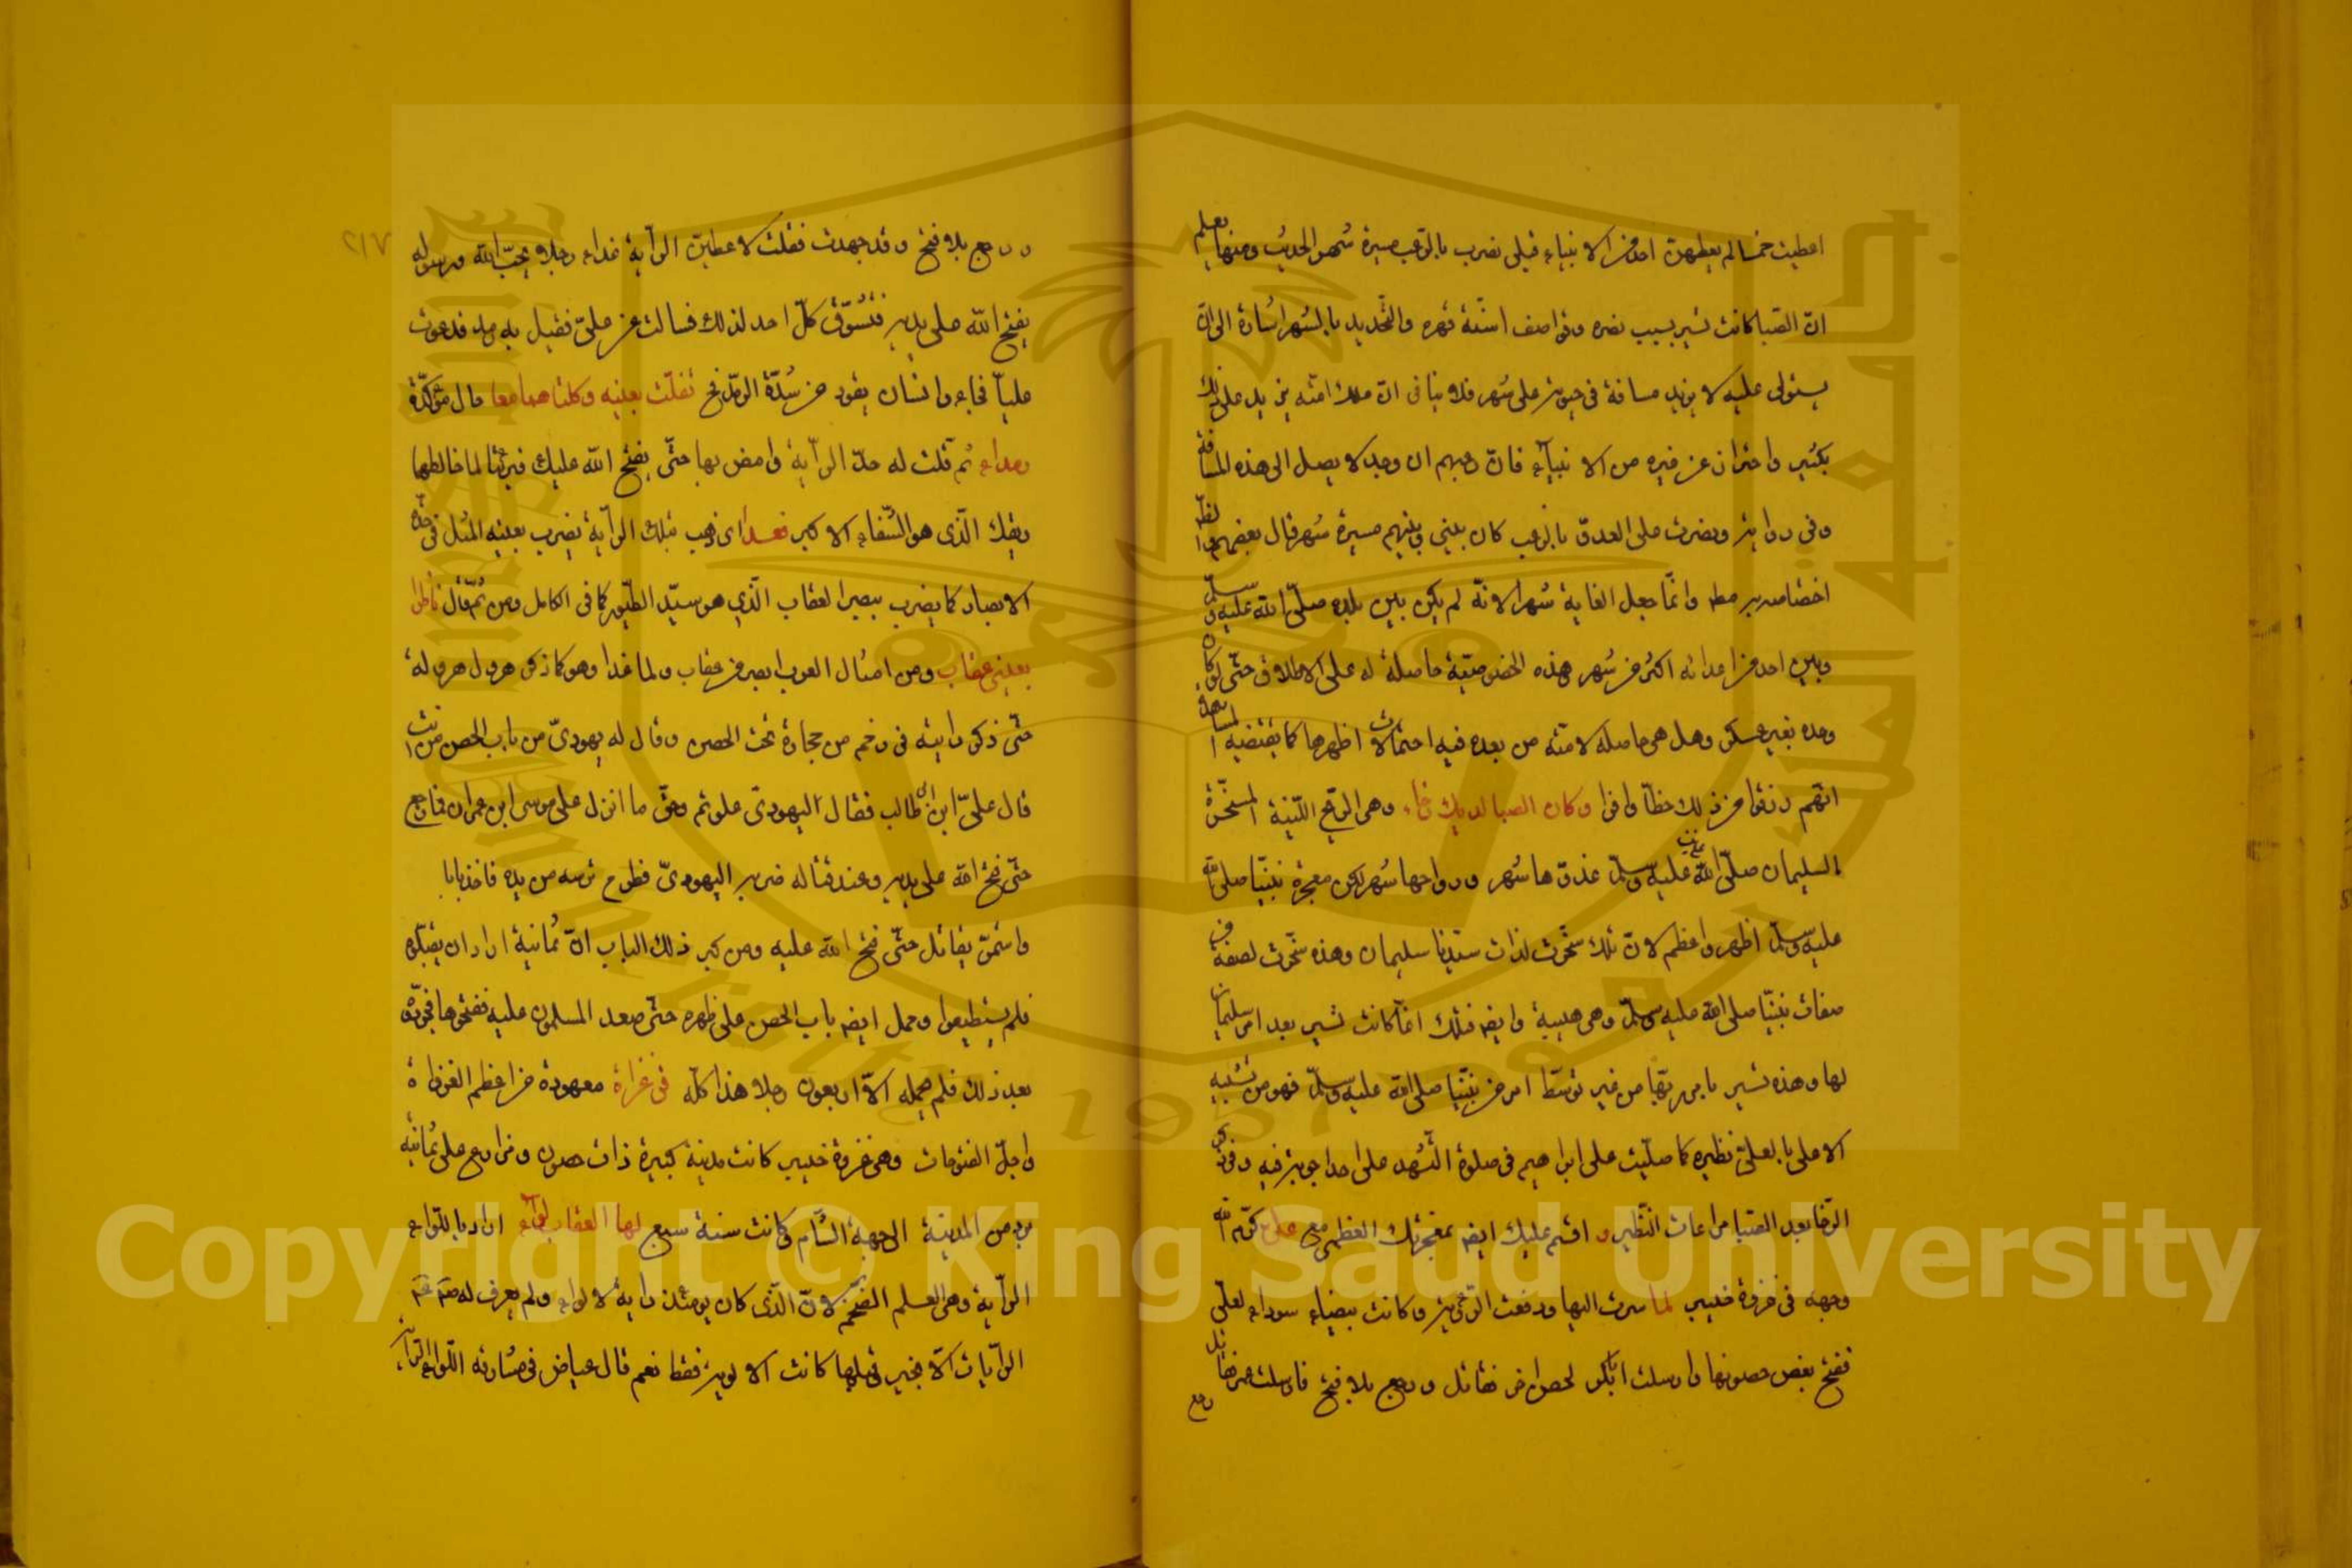 اعطيت خمسا لم يعطهن احد من الانبياء قبلى نصرت بالرعب مسيرة شهر الحديث ومنها يعلم
انّ الصّبا كانت تسير بسبب نصره وقواصف اشنّة قهره والتّحديد بالشهر اشارة الى انّ
يستولى عليه لا يزيد مسافة فى حيوته على شهر فلا ينافى انّ ملك امّته يزيد على ذلك
بكثير واحترازا عن غيره من الانبيآء فانّ رعبهم ان وجد لا يصل الى هذه المسافة
وفى رواية ونصرت على العدوّ بالرعب كان بينى وبينهم مسيرة شهر قال بعضهم
اختصاصه به مط وانّما جعل الغاية شهرا لانّه لم يكن بين بلده صلّى الله عليه وسلّم
وبين احد من اعدائه اكثر من شهر هذه الخصوصيّة حاصلة له على الاطلاق حتّى لو كان
وحده بغير عسكر وهل هى حاصله لامّته من بعده فيه احتمالات اظهرها كما يقتضيه
انّهم رزقوا من ذلك حظّا وافرا وكان الصبا لديك رخاء وهى الرّيح اللّينة المسخّرة
لسليمان صلّى الله عليه وسلّم غدوّها شهر ورواحها شهر لكن معجزة نبيّنا صلى الله
عليه وسلّم اظهر واعظم لانّ تلك سخّرت لذات سيّدنا سليمان وهذه سخّرت لصفة من
صفات نبيّنا صلى الله عليه وسلّم وهى هيبة وايضا فتلك انّما كانت تسير بعد امر سليمان
لها وهذه تسير بامر ربّها من غير توسّط امر من نبيّنا صلى الله عليه وسلّم فهو من تشبيه
الاعلى بالعلىّ نظيره كما صلّيت على ابراهيم فى صلوة التّشهد على احد اجوبة فيه وذكر
الرّخا بعد الصّبا مراعات النّظير و اقسم عليك ايضا بمعجزتك العظمى مع على كرّم الله
وجهه فى غزوة خيبر لما سرت اليها ودفعت الرّاية وكانت بيضاء سوداء لعلىّ
ففتح بعض حصونها وارسلت ابابكر لحصن اخر فقاتل ورجع بلا فتح فارسلت عمر فقاتل
رجع
ورجع بلا فتح وقد جهدت فقلت لاعطينّ الرّاية غداء رجلا يحبّ الله ورسوله
يفتح الله على يديه فتشوّق كلّ احد لذلك فسالت عن علىّ فقيل به رمد فدعوت
عليّا فجاء وانسان يقود من شدّة الرّمد فح تفلت بعينيه وكلتاهما معا حال مؤكّدة
رمداء ثم قلت له خذ الرّاية وامض بها حتّى يفتح الله عليك فبرئتا لما خالطها
ريقك الّذى هو الشّفاء الاكبر فغدا اى ذهب بتلك الرّاية يضرب بعينيه المثل فى حدّة
الابصار كما يضرب ببصر العقاب الّذى هو سيّد الطّيور كما فى الكامل ومن ثمّ قال ناظرا
بعينى عقاب ومن امثال العرب ابصر من عقاب ولما غدا وهو كما ذكر هرول هرولة
حتّى ذكر رايته فى رخم من حجارة تحت الحصن وقال له يهودىّ من باب الحصن من انت
قال علىّ ابن ابى طالب فقال اليهودىّ علوتم وحقّ ما انزل على موسى ابن عمران فما رجع
حتّى فتح الله على يديه وعند قتاله ضربه اليهودىّ فطرح ترسه من يده فاخذ بابا
واستمرّ يقاتل حتّى فتح الله عليه ومن كبر ذلك الباب انّ ثمانية ارادا ان يقلبّوه
فلم يستطيعوا وحمل ايضا باب الحصن على ظهره حتّى صعد المسلمون عليه ففتحوها فجرّوه
بعد ذلك فلم يحمله الّا اربعون رجلا هذا كلّه فى غزاة معهودة من اعظم الغزواة
واجلّ الفتوحات وهى غزوة خيبر كانت مدينة كبيرة ذات حصون ومزارع على ثمانية
برد من المدينة الى جهة الشّام وكانت سنة سبع لها العقاب لوآء اراد باللّواء
الرّاية وهى العلم الضّخم لانّ الّذى كان يومئذ راية لا لواء ولم يعرف له صم
الرّايات الّا بخيبر قبلها كانت الالوية فقط نعم قال عياض فى مشارقه اللّواء الرّاية